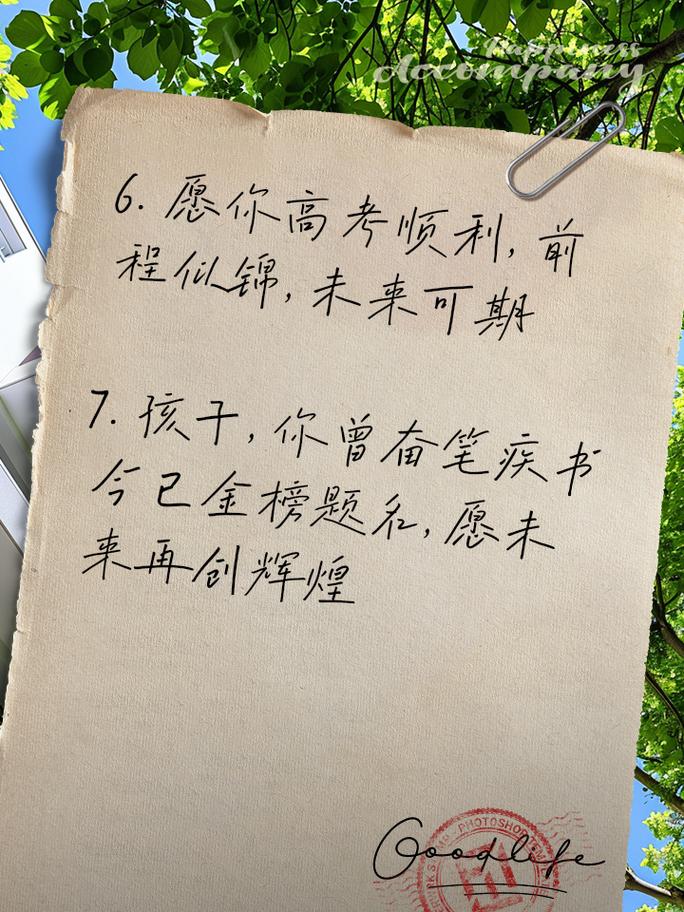 Happiness
Accompany
6. 愿你高考顺利, 前
程似锦, 未来可期
7. 孩子, 你曾奋笔疾书
今已金榜题名, 愿未
来再创辉煌
PHOTOSHOP
Goodlife